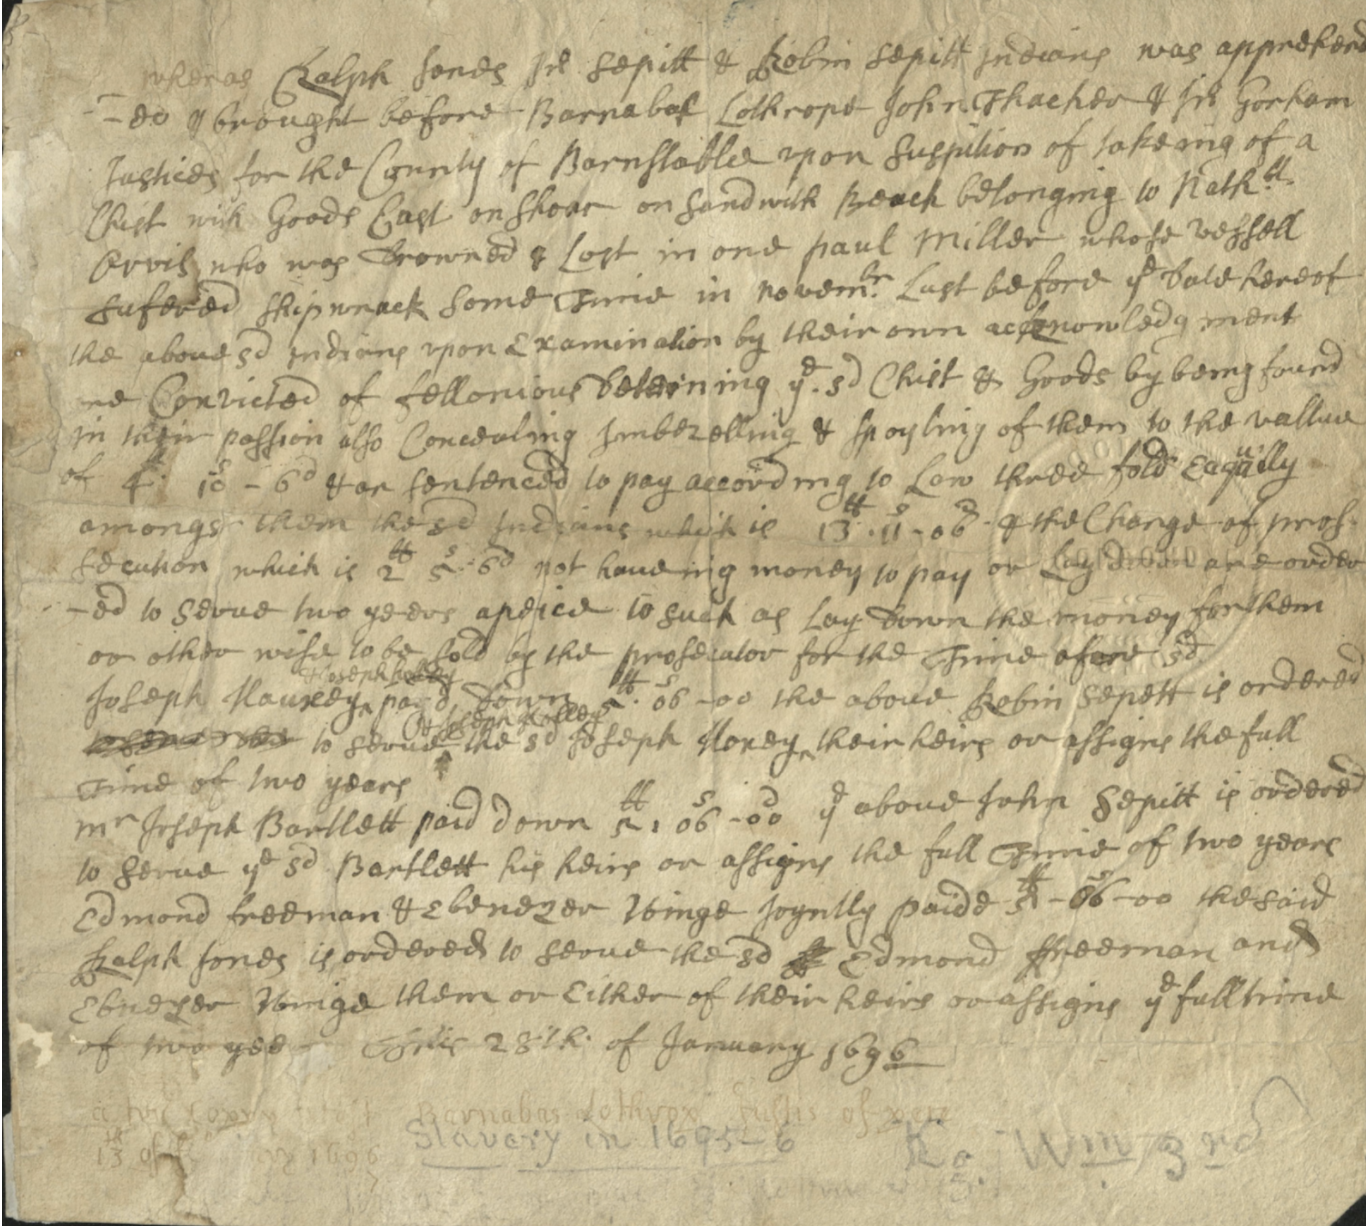 whereas Ralph Jones Jno Sepitt & Robin Sepitt Indians was apprehend
-ed & brought before Barnabas Lothrope John Thacher & Jno Gorham
Justices for the County of Barnstable upon Suspition of takeing of a
Chist with Goods Cast on Shoar on Sandwich Beach belonging to Nathll
who was Drowned & Lost in one paul Miller whose vessell
Sufered Shipwrack Some Time in novembr Last before ye Date hereof
the above sd Indians upon Examination by their own acknowledgment
are Convicted of fellonious Detaining ye sd Chist & Goods by being found
in their possion also Concealing Imbezelling & Spoyling of them to the vallue
of 4 10s - 6d & are Sentenced to pay according to Law three fold Eaqually
amongs them the sd Indians which is 13tt - 11s - 06d & the Charge of pros-
Secution which is 2tt 5s 6d not haueing money to pay or Lay Down are order
-ed to Serue two yeers apeice to such as Lay Down the money for them
or other wise to be Sold by the prosecutor for the Time afore sd
Joseph payd Down 5tt 06s - 00 the above Robin Sepett is ordered
to serue the sd Joseph their heirs or assigns the full
Time of two years
mr Joseph Bartlett paid down 5tt : 06s - 00d ye above John Sepitt is ordered
to serue ye sd Bartlett his heirs or assigns the full Time of two years
Edmond freeman & Ebenezer Winge Joyntly paide 5tt - 06s - 00 the said
Ralph Jones is ordered to serue the sd Edmond ffreeman and
Ebnezer Winge them or Either of their heirs or assigns ye full time
of two yee This 28th of January 1696
a tru Coppy Barnabas Lothrop Justis of
13 1696
Slavery in 1695-6
Wm 3rd